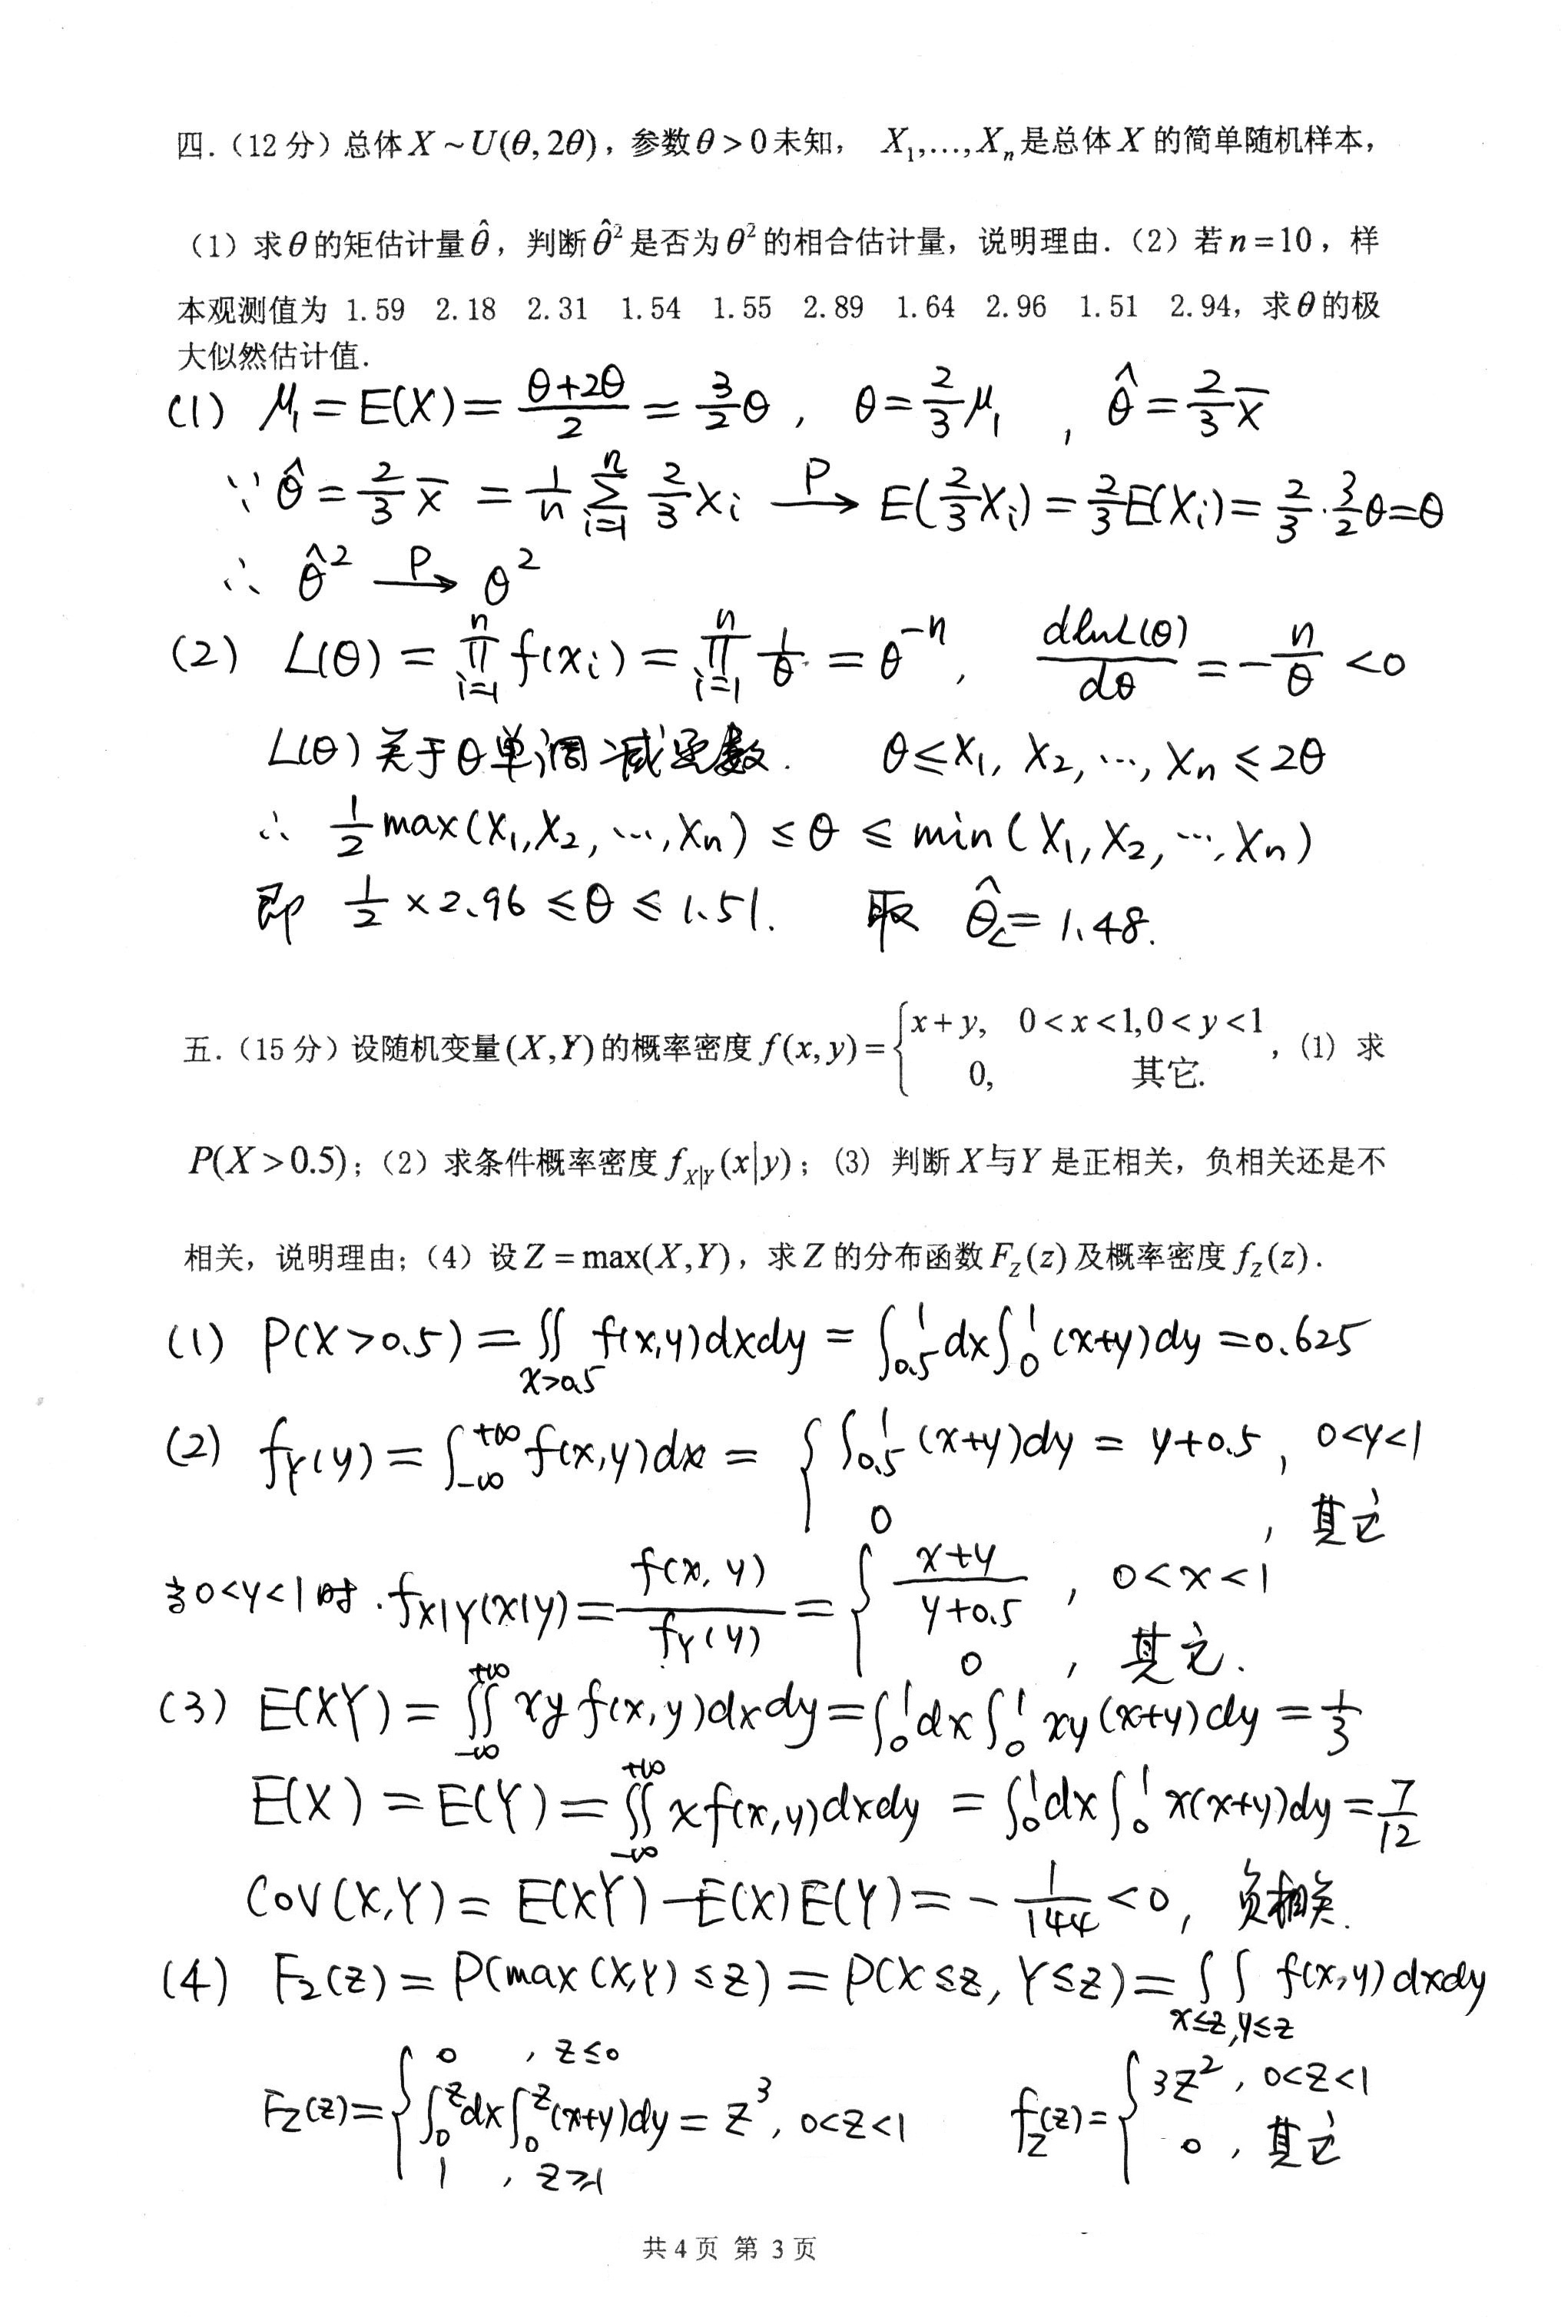 四.（12分）总体X~U(θ,2θ)，参数θ>0未知， X₁,…,Xₙ是总体X的简单随机样本，
（1）求θ的矩估计量θ̂，判断θ̂²是否为θ²的相合估计量，说明理由.（2）若n=10，样
本观测值为 1.59 2.18 2.31 1.54 1.55 2.89 1.64 2.96 1.51 2.94，求θ的极
大似然估计值.
(1) μ₁=E(X)=(θ+2θ)/2=3/2 θ, θ=2/3 μ₁, θ̂=2/3 X̄
∵ θ̂=2/3 X̄ = 1/n ∑_{i=1}^{n} 2/3 Xᵢ —P→ E(2/3 Xᵢ)=2/3 E(Xᵢ)=2/3·3/2 θ=θ
∴ θ̂² —P→ θ²
(2) L(θ)=∏_{i=1}^{n} f(xᵢ)=∏_{i=1}^{n} 1/θ=θ⁻ⁿ, dlnL(θ)/dθ=-n/θ<0
L(θ)关于θ单调减函数. θ≤X₁, X₂, …, Xₙ≤2θ
∴ 1/2 max(X₁,X₂,…,Xₙ)≤θ≤min(X₁,X₂,…,Xₙ)
即 1/2×2.96≤θ≤1.51. 取 θ̂_L=1.48.
五.（15分）设随机变量(X,Y)的概率密度f(x,y)={x+y, 0<x<1,0<y<1; 0, 其它.，(1) 求
P(X>0.5)；（2）求条件概率密度f_{X|Y}(x|y)；(3) 判断X与Y是正相关，负相关还是不
相关，说明理由;（4）设Z=max(X,Y)，求Z的分布函数F_Z(z)及概率密度f_Z(z).
(1) P(X>0.5)=∬_{x>0.5} f(x,y)dxdy=∫_{0.5}^{1}dx∫_{0}^{1}(x+y)dy=0.625
(2) f_Y(y)=∫_{-∞}^{+∞}f(x,y)dx={∫_{0.5}^{1}(x+y)dy=y+0.5, 0<y<1; 0, 其它
当0<y<1时.f_{X|Y}(x|y)=f(x,y)/f_Y(y)={(x+y)/(y+0.5), 0<x<1; 0, 其它.
(3) E(XY)=∬_{-∞}^{+∞}xyf(x,y)dxdy=∫_{0}^{1}dx∫_{0}^{1}xy(x+y)dy=1/3
E(X)=E(Y)=∬_{-∞}^{+∞}xf(x,y)dxdy=∫_{0}^{1}dx∫_{0}^{1}x(x+y)dy=7/12
COV(X,Y)=E(XY)-E(X)E(Y)=-1/144<0, 负相关.
(4) F_Z(z)=P(max(X,Y)≤z)=P(X≤z,Y≤z)=∬_{x≤z,y≤z} f(x,y)dxdy
F_Z(z)={0, z≤0; ∫_{0}^{z}dx∫_{0}^{z}(x+y)dy=z³, 0<z<1; 1, z≥1 f_Z(z)={3z², 0<z<1; 0, 其它
共4页 第 3页